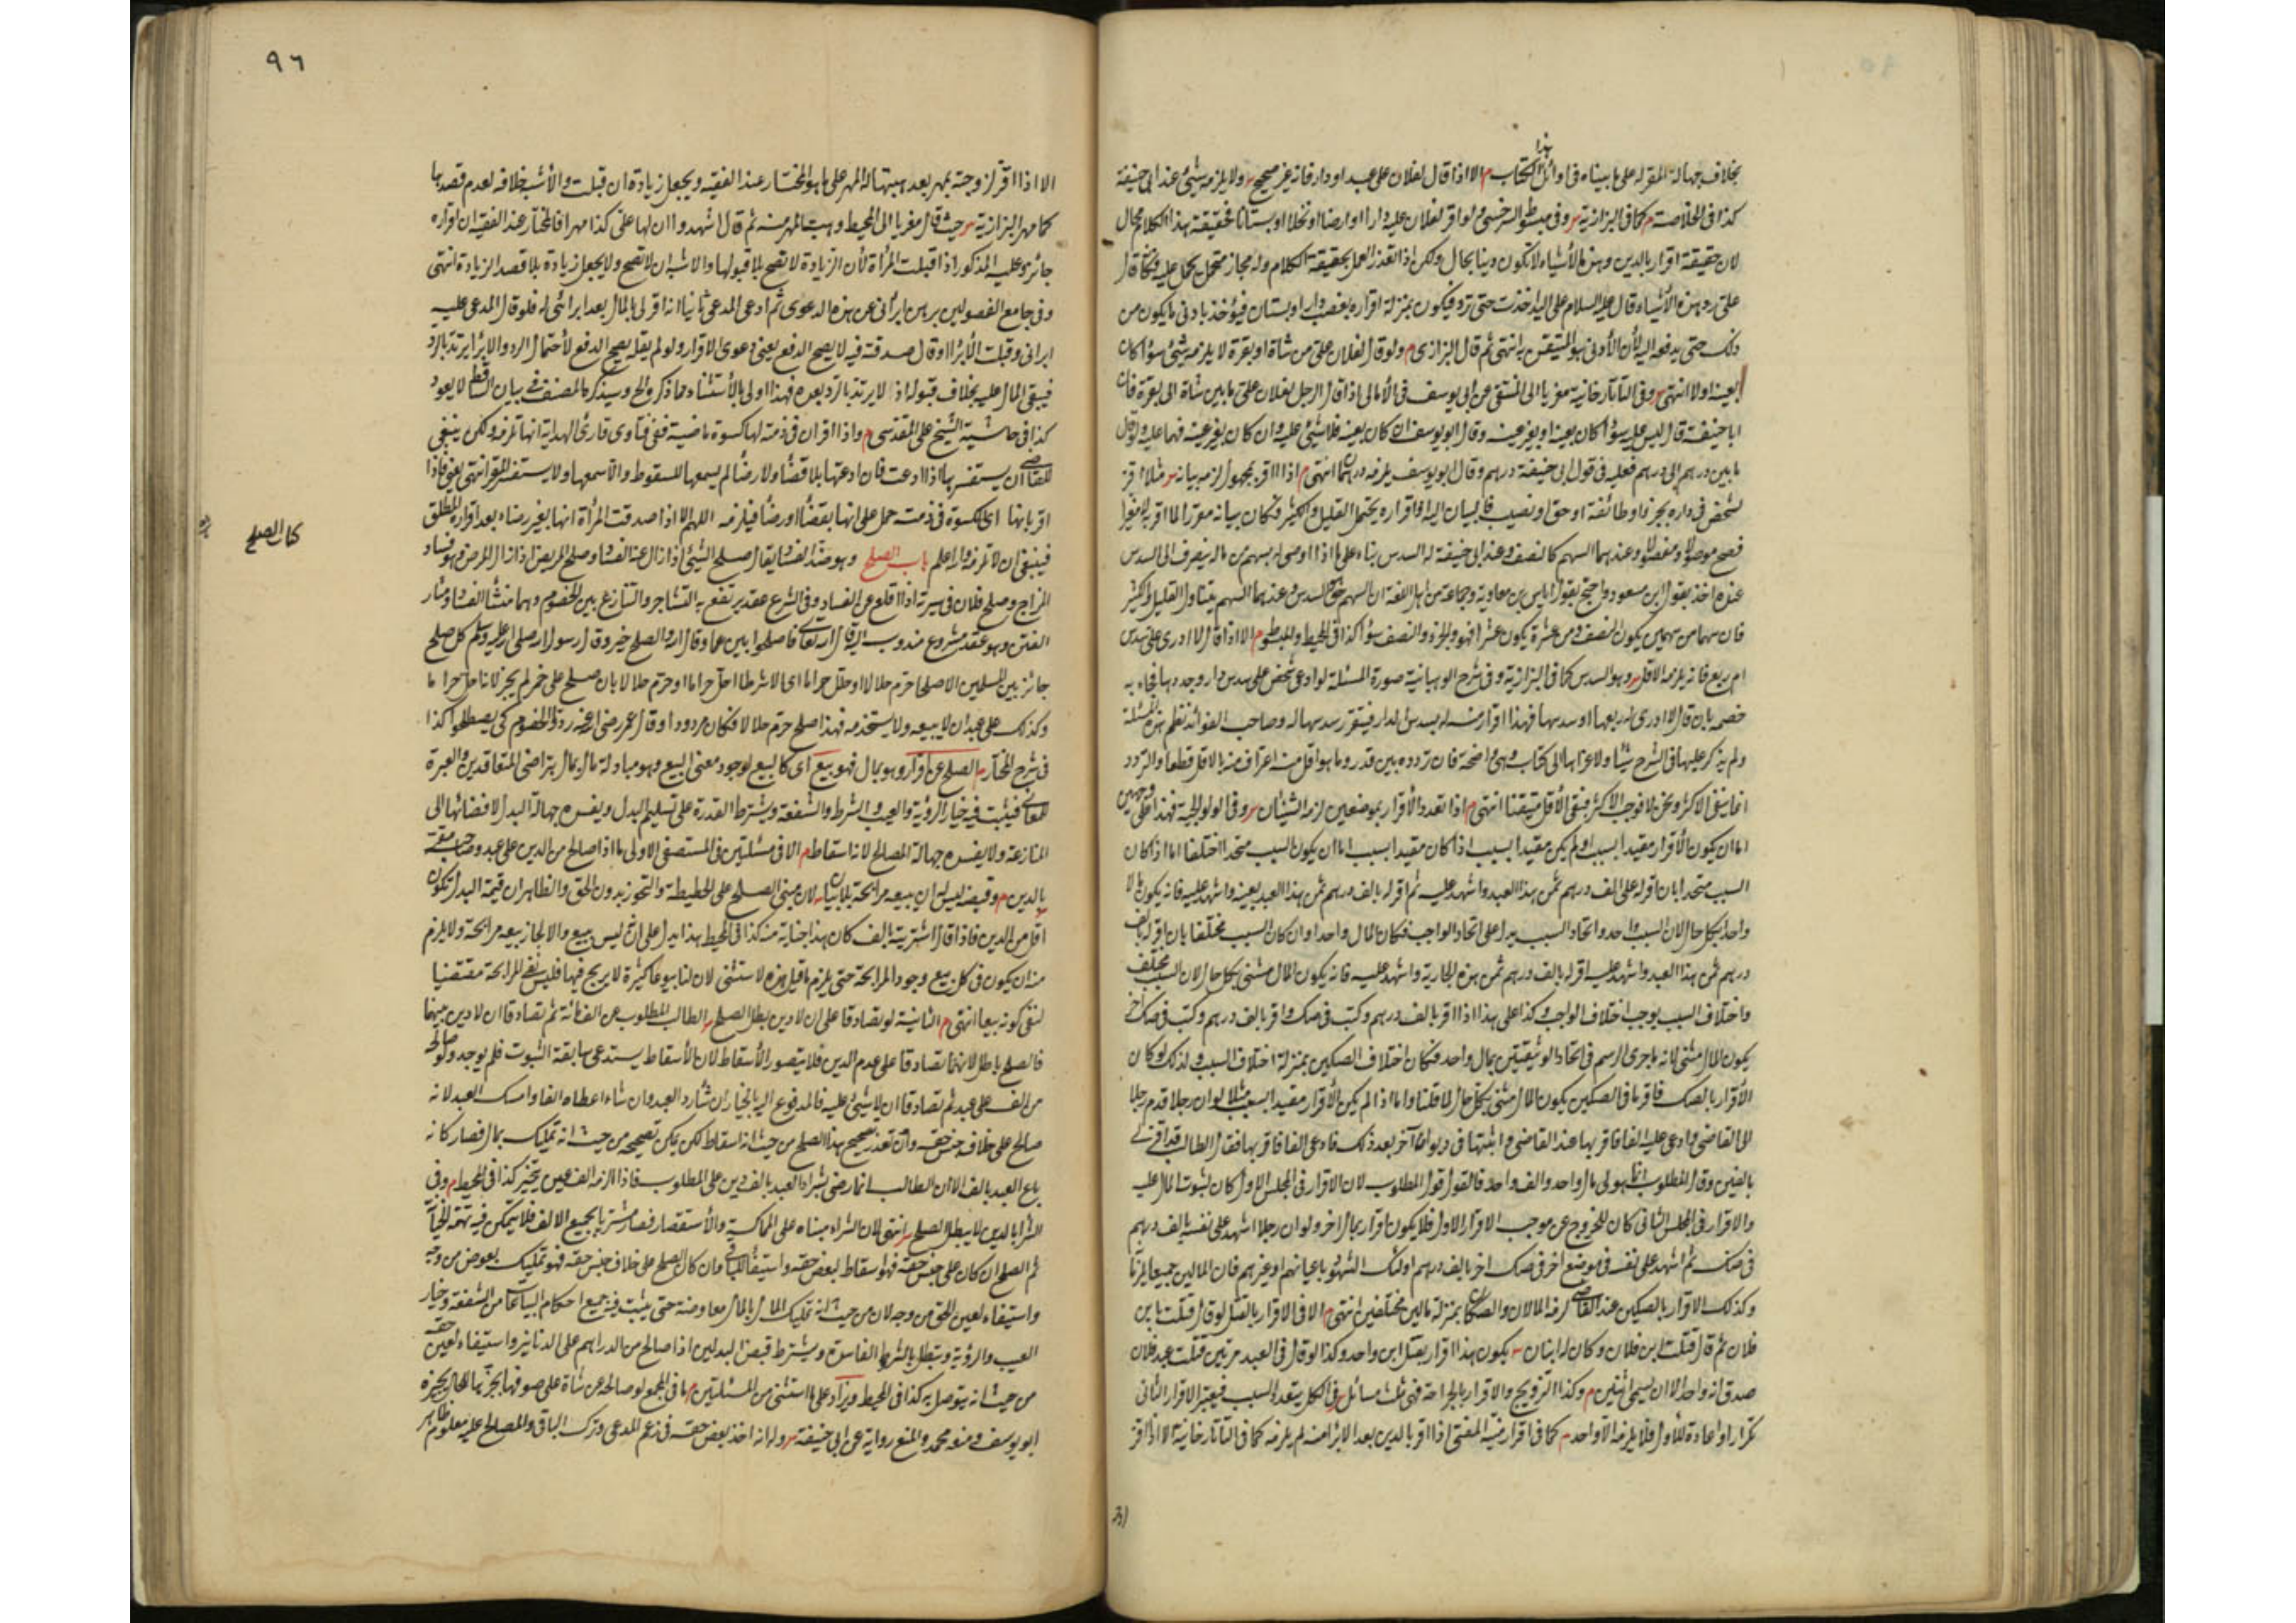 هذا
بخلاف جهالة المقر له على ما بيناه فى اوائل الكتاب م الا اذا قال لفلان على عبد او دار فانه غير صحيح ولا يلزمه شئ عند ابى حنيفة
كذا فى الخلاصة م كما فى البزازية وفى مبسوط السرخسى ولو اقر لفلان عليه دارا او ارضا او نخلا او بستانا فحقيقة هذا الكلام محال
لان حقيقته اقرار بالدين وهذه الأشياء لا تكون دينا بحال ولكن اذا تعذر العمل بحقيقة الكلام وله مجاز محتمل يحمل عليه فكأنه قال
على رد هذه الأشياء وقال عليه السلام على اليد ما اخذت حتى ترد فيكون بمنزلة اقراره بغصب دار او بستان فيؤخذ بادنى ما يكون من
ذلك حتى يدفعه اليه لأن الأدنى هو المتيقن به انتهى ثم قال البزازى م ولو قال لفلان على من شاة او بقرة لا يلزمه شئ سواء كان
بعينه اولا انتهى وفى التاتارخانية معزيا الى المنتقى عن ابى يوسف فى الأمالى اذا قال الرجل لفلان على ما بين شاة الى بقرة فان
ابا حنيفة قال ليس عليه سواء كان بعينه او بغير عينه وقال ابو يوسف ان كان بعينه فلا شئ عليه وان كان بغير عينه فهما عليه ولو قال
ما بين درهم الى درهم فعليه فى قول ابى حنيفة درهم وقال ابو يوسف يلزمه درهمان انتهى م اذا اقر بمجهول لزمه بيانه مثلا اقر
لشخص فى داره بجزء او طائفة او حق او نصيب فالبيان اليه لان اقراره يحتمل القليل والكثير فكان بيانه مقررا لما اقر به لا مغيرا
فصح موصولا ومفصولا وعندهما السهم كالنصف وعند ابى حنيفة له السدس بناء على ما اذا اوصى له بسهم من ماله ينصرف الى السدس
عنده اخذ بقول ابن مسعود واحتج بقول اياس بن معاوية وجماعة من اهل اللغة ان السهم هو السدس وعندهما السهم يتناول القليل والكثير
فان سهما من سهمين يكون النصف ومن عشرة يكون عشرا فهو والجزء والنصف سواء كذا فى المحيط والمبسوط م الا اذا قال لا ادرى على سدس
ام ربع فانه يلزمه الاقل وهو السدس كما فى البزازية وفى شرح الوهبانية صورة المسئلة لو ادعى شخص على سدس دار وجدد بها فجاء به
خصمه بان قال لا ادرى له ربعها او سدسها فهذا اقرار منه له بسدس الدار فيتقرر سدسها له وصاحب الفوائد نظم هذه المسئلة
ولم يذكر عليها فى الشرح شيئا ولا عزاها الى كتاب وهى واضحة فان تردده بين قدر وما هو اقل منه اعتراف منه بالاقل قطعا والتردد
انما ينفى الاكثر ونحن لا نوجب الاكثر فبقى الأقل متيقنا انتهى م اذا تعدد الأقرار بموضعين لزمه الشيئان وفى الولوالجية فهذا على وجهين
اما ان يكون الأقرار مقيدا بسبب او لم يكن مقيدا بسبب اذا كان مقيدا بسبب اما ان يكون السبب متحدا او مختلفا اما اذا كان
السبب متحدا بان اقر له على الف درهم ثمن هذا العبد واشهد عليه ثم اقر له بالف درهم ثمن هذا العبد بعينه واشهد عليه فانه يكون المال
واحدا بكل حال لان السبب واحد واتحاد السبب يدل على اتحاد الواجب فكان المال واحدا وان كان السبب مختلفا بان اقر له بالف
درهم ثمن هذا العبد واشهد عليه اقر له بالف درهم ثمن هذه الجارية واشهد عليه فانه يكون المال مثنى بكل حال لان السبب مختلف
واختلاف السبب يوجب اختلاف الواجب وكذا على هذا اذا اقر بالف درهم وكتب فى صك واقر بالف درهم وكتب فى صك آخر
يكون المال مثنى لانه ما جرى الرسم فى اتحاد الوثيقتين بمال واحد فكان اختلاف الصكين بمنزلة اختلاف السبب ولذلك لو كان
الأقرار بالصك فاقر بما فى الصكين يكون المال مثنى بكل حال لما قلنا واما اذا لم يكن الأقرار مقيدا بسبب مثلا لو ان رجلا قدم رجلا
الى القاضى وادعى عليه الفا فاقر بها عند القاضى واثبتها فى ديوانه ثم آخر بعد ذلك فادعى الفا فاقر بها فقال الطالب قد اقر لى
بالفين وقال المطلوب انما هو لى مال واحد والف واحد فالقول قول المطلوب لان الاقرار فى المجلس الاول كان لثبوت المال عليه
والاقرار فى المجلس الثانى كان للخروج عن موجب الاقرار الاول فلا يكون اقرارا بمال اخر ولو ان رجلا اشهد على نفسه بالف درهم
فى صك ثم اشهد على نفسه فى موضع اخر فى صك اخر بالف درهم اولئك الشهود باعيانهم او غيرهم فان المالين جميعا يلزمانه
وكذلك الاقرار بالصكين عند القاضى لزمه المالان والصكان بمنزلة مالين مختلفين انتهى م الا فى الاقرار بالقتل لو قال قتلت ابن
فلان ثم قال قتلت ابن فلان وكان له ابنان يكون هذا اقرار بقتل ابن واحد وكذا لو قال فى العبد مرتين قتلت عبد فلان
صدق انه واحد الا ان يسمى اثنين م وكذا التزويج والاقرار بالجراحة فهى ثلث مسائل فى الكل يتعدد السبب فيعتبر الاقرار الثانى
تكرارا واعادة للأول فلا يلزمه الا واحد م كما فى اقرار منية المفتى اذا اقر بالدين بعد الابراء منه لم يلزمه كما فى التاتارخانية الا اذا اقر
٩٦
الا اذا اقر لزوجته بمهر بعد هبتها له المهر على ما هو المختار عند الفقيه ويجعل زيادة ان قبلت والأشبه خلافه لعدم قصدها
كما مهر البزازية حيث قال معزيا الى المحيط وهبت المهر منه ثم قال اشهدوا ان لها على كذا مهرا فالمختار عند الفقيه ان اقراره
جائز وعليه المذكور اذا قبلت المرأة لأن الزيادة لا تصح بلا قبولها والاشبه ان لا تصح ولا يجعل زيادة بلا قصد الزيادة انتهى
وفى جامع الفصولين برهن ابرائى عن هذه الدعوى ثم ادعى المدعى ثانيا انه اقر لى بالمال بعد ابرائى له فلو قال المدعى عليه
ابرانى وقبلت الأبراء او قال صدقته فيه لا يصح الدفع يعنى دعوى الاقرار ولو لم يقله يصح الدفع لأحتمال الرد والابراء يرتد بالرد
فيبقى المال عليه بخلاف قبوله اذ لا يرتد بالرد بعده فهذا اولى بالأستثناء مما ذكر والح وسيذكره المصنف فى بيان الساقط لا يعود
كذا فى حاشية الشيخ على المقدسى م واذا اقر ان فى ذمته لها كسوة ماضية ففى فتاوى قارئ الهداية انها تلزمه ولكن ينبغى
للقاضى ان يستفسرها اذا ادعت فان ادعتها بلا قضاء ولا رضا لم يسمعها للسقوط والا سمعها ولا يستفسر المقر انتهى يعنى فاذا
اقر بانها اى الكسوة فى ذمته حمل على انها بقضاء او رضا فيلزمه اللهم الا اذا صدقت المرأة انها بغير رضاء بعد اقراره المطلق
فينبغى ان لا تلزمه والله اعلم باب الصلح وهو ضد الفساد يقال صلح الشئ اذا زال عنه الفساد وصلح المريض اذا زال المرض وهو فساد
المزاج وصلح فلان فى سيرته اذا اقلع عن الفساد وفى الشرع عقد يرتفع به التشاجر والتنازع بين الخصوم وهما منشأ الفساد ومثار
الفتن وهو عقد مشروع مندوب اليه قال الله تعالى فاصلحوا بينهما وقال الله والصلح خير وقال رسول الله صلى الله عليه وسلم كل صلح
جائز بين المسلمين الا صلحا حرم حلالا او حلل حراما اى الا شرطا احل حراما او حرم حلالا بان صلح على خمر لم يجز لانه احل حراما
وكذلك على عبد ان لا يبيعه ولا يستخدمه فهذا صلح حرم حلالا فكان مردودا وقال عمر رضى الله عنه ردوا الخصوم كى يصطلحوا كذا
فى شرح المختار الصلح عن اقرار وهو بمال فهو بيع اى كالبيع لوجود معنى البيع وهو مبادلة مال بمال بتراضى المتعاقدين والعبرة
للمعانى فيثبت فيه خيار الرؤية والعيب والشرط والشفعة ويشترط القدرة على تسليم البدل ويفسده جهالة البدل لافضائها الى
المنازعة ولا يفسده جهالة المصالح لانه اسقاط م الا فى مسئلتين فى المستصفى الاولى ما اذا صالح من الدين على عبد وصاحبه مقر
بالدين م وقبضه ليس له ان يبيعه مرابحة بلا بيان لان مبنى الصلح على الحطيطة والتجوز بدون الحق والظاهر ان قيمة البدل تكون
اقل من الدين فاذا قال اشتريته بالف كان هذا جناية منه كذا فى المحيط هذا يدل على انه ليس ببيع والا لجاز بيعه مرابحة ولا يلزم
منه ان يكون فى كل بيع وجود المرابحة حتى يلزم ما قيل هذه لا ستثنى لان لنا بيوعا كثيرة لا يربح فيها فليس نفى المرابحة مقتضيا
لنفى كونه بيعا انتهى م الثانية لو تصادقا على ان لا دين بطل الصلح الطالب المطلوب عن الف مائة ثم تصادقا ان لا دين بينهما
فالصلح باطل لانهما تصادقا على عدم الدين فلا يتصور الأسقاط لان الأسقاط يستدعى سابقة الثبوت فلم يوجد ولو صالحه
من الف على عبد ثم تصادقا ان لا شئ عليه فالمدفوع اليه بالخيار ان شاء رد العبد وان شاء اعطاه الفا وامسك العبد لانه
صالح على خلاف جنس حقه وان تعذر تصحيح هذا الصلح من حيث انه اسقاط لكن يمكن تصحيحه من حيث انه تمليك بمال فصار كانه
باع العبد بالف الا ان الطالب انما رضى بشراء العبد بالف دين على المطلوب فاذا الزمه الف عين يتخير كذا فى المحيط م وفى
الشراء بالدين لا يبطل الصلح انتهى لان الشراء مبناه على المماكسة والأستقصاء فصار مشتريا بجميع الالف فلا يتمكن فيه تهمة الخيانة
ثم الصلح ان كان على جنس حقه فهو اسقاط لبعض حقه واستيفاء للباقى وان كان الصلح على خلاف جنس حقه فهو تمليك بعوض من وجه
واستيفاء لعين الحق من وجه لان من حيث انه تمليك المال بالمال معاوضة حتى يثبت فيه جميع احكام البياعات من الشفعة وخيار
العيب والرؤية ويبطل بالشروط الفاسدة ويشترط قبض البدلين اذا صالح من الدراهم على الدنانير واستيفاء لعين حقه
من حيث انه يتوصل به كذا فى المحيط ويزاد على ما استثنى من المسئلتين ما فى المجمع لو صالحه عن شاة على صوفها يجز بها للحال يجيزه
ابو يوسف ومنعه محمد والمنع رواية عن ابى حنيفة ولها انه اخذ بعض حقه فى زعم المدعى وترك الباقى والمصالح عليه معلوم ظاهر
كتاب الصلح